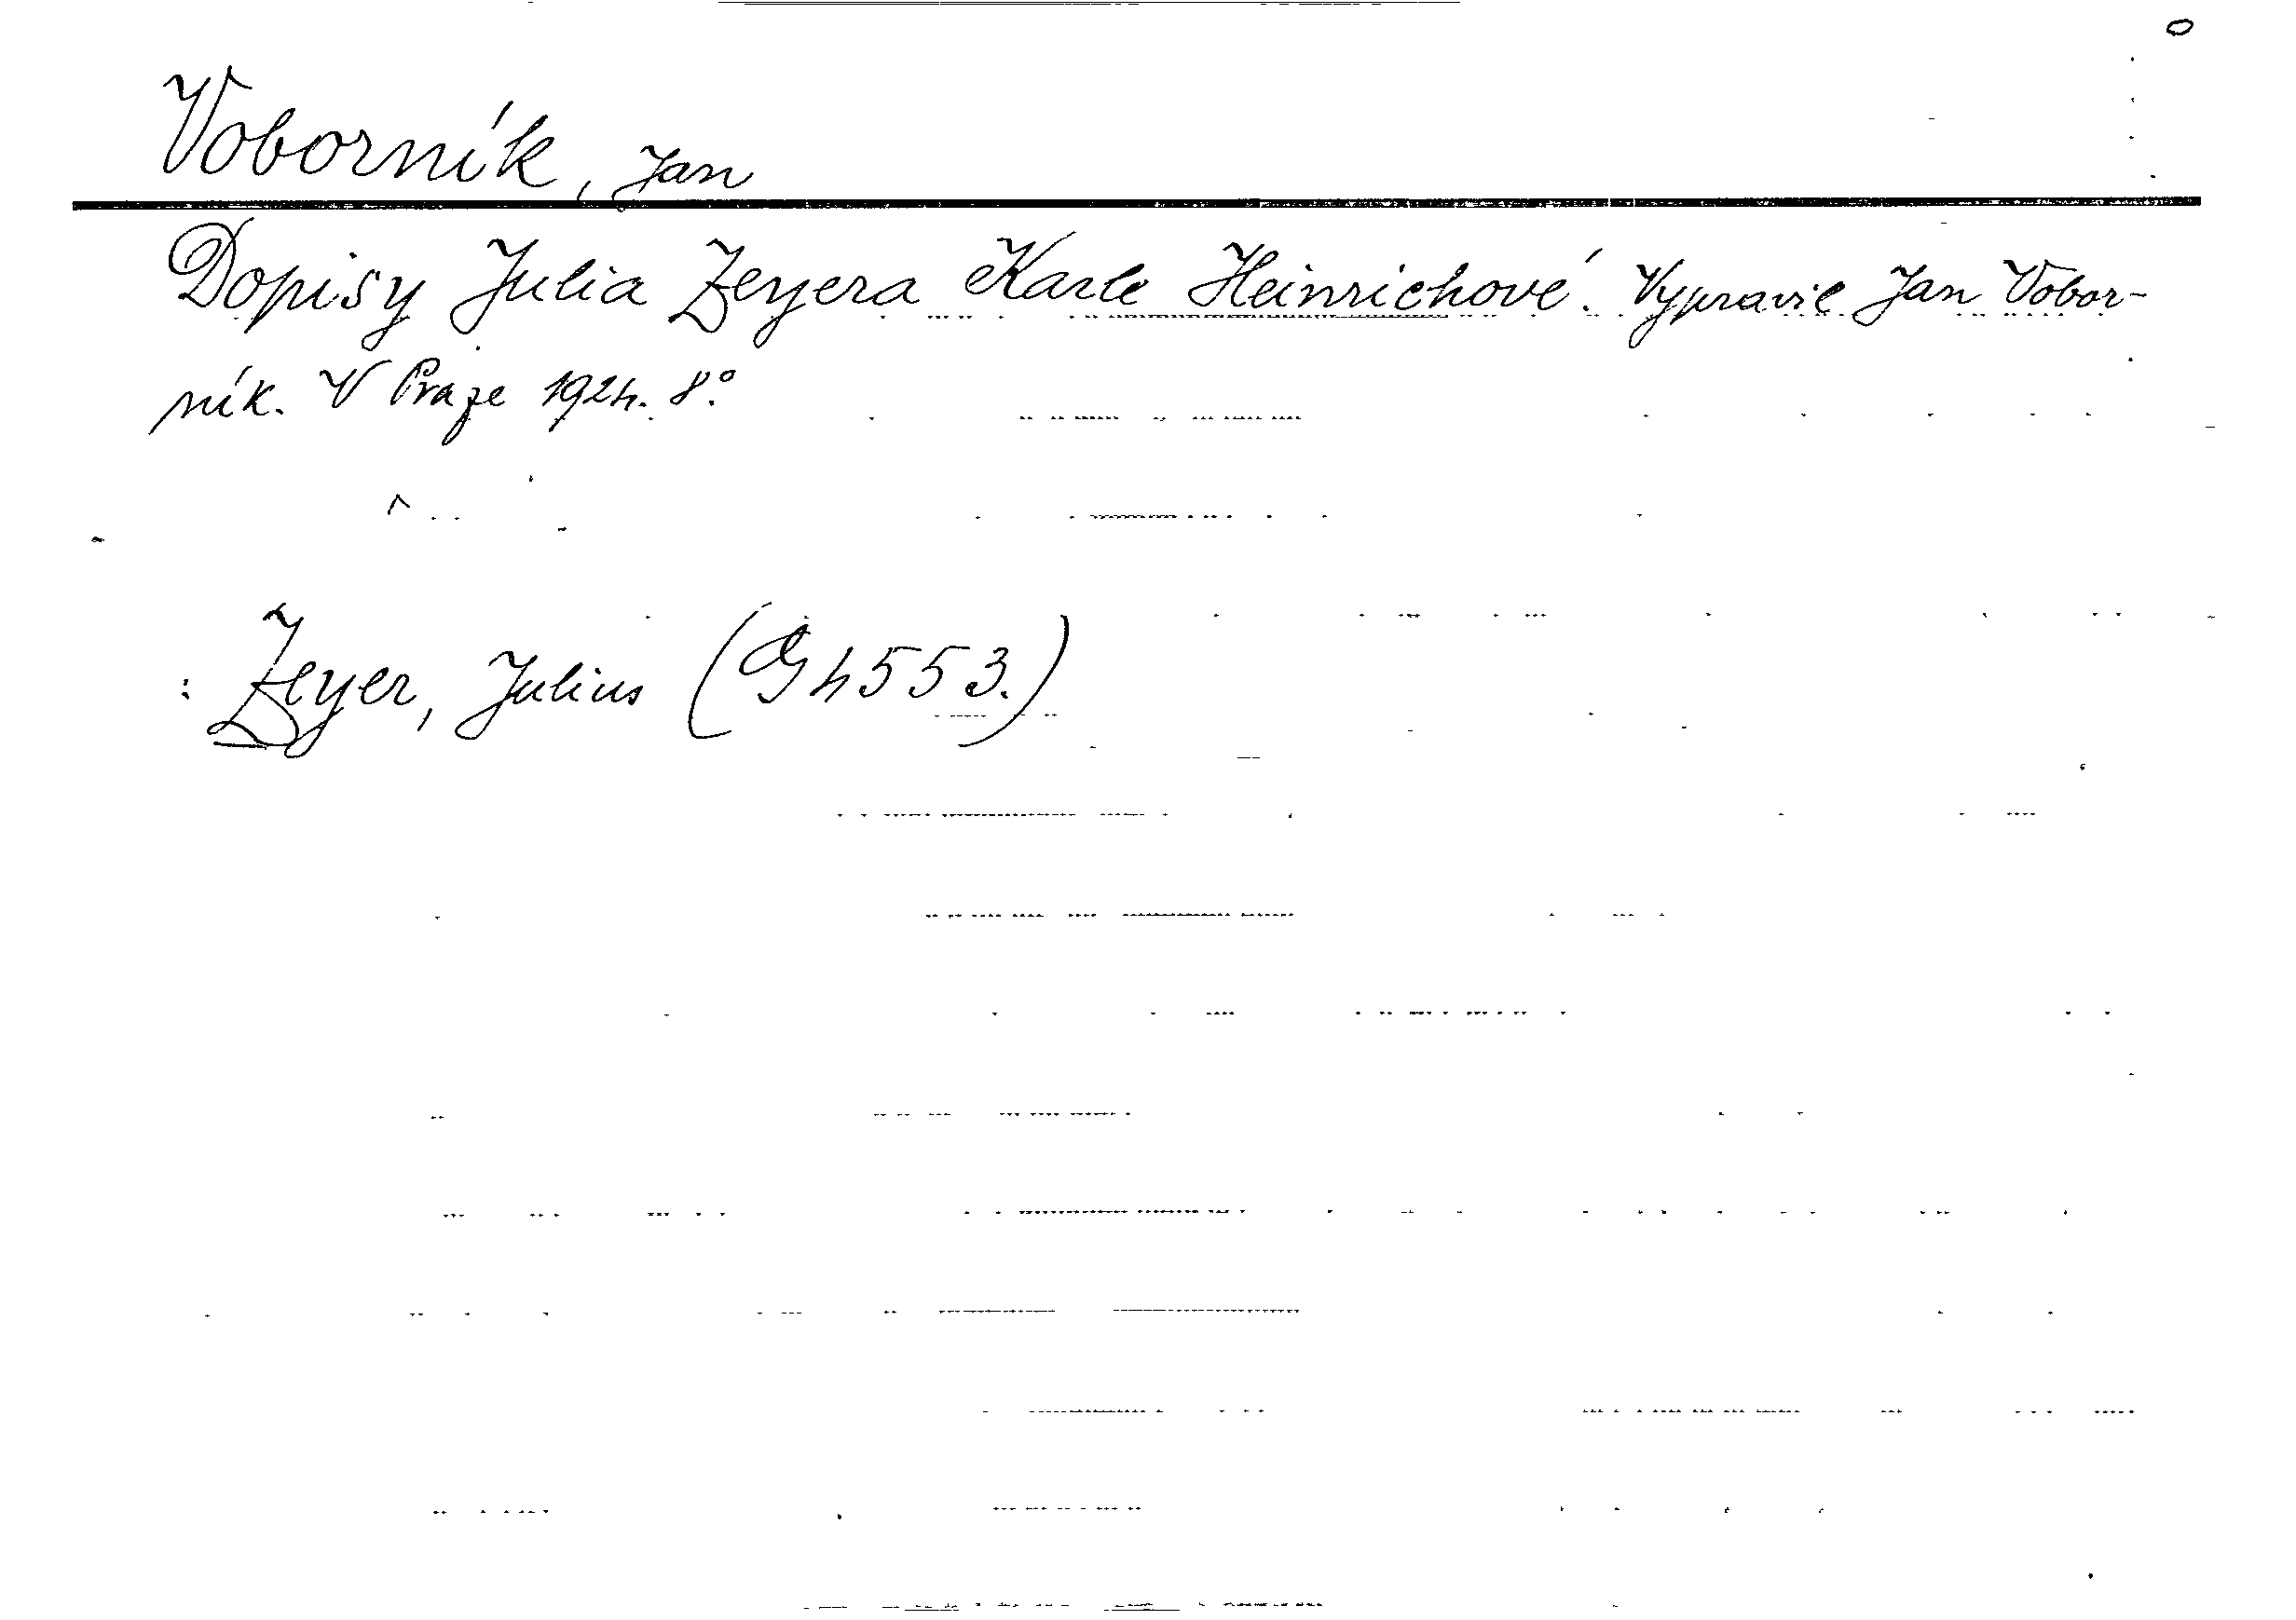 Voborník, Jan
Dopisy Julia Zeyera Karle Heinrichové. Vypravil Jan Vobor-
ník. V Praze 1924. 8°.
: Zeyer, Julius (G 4553.)